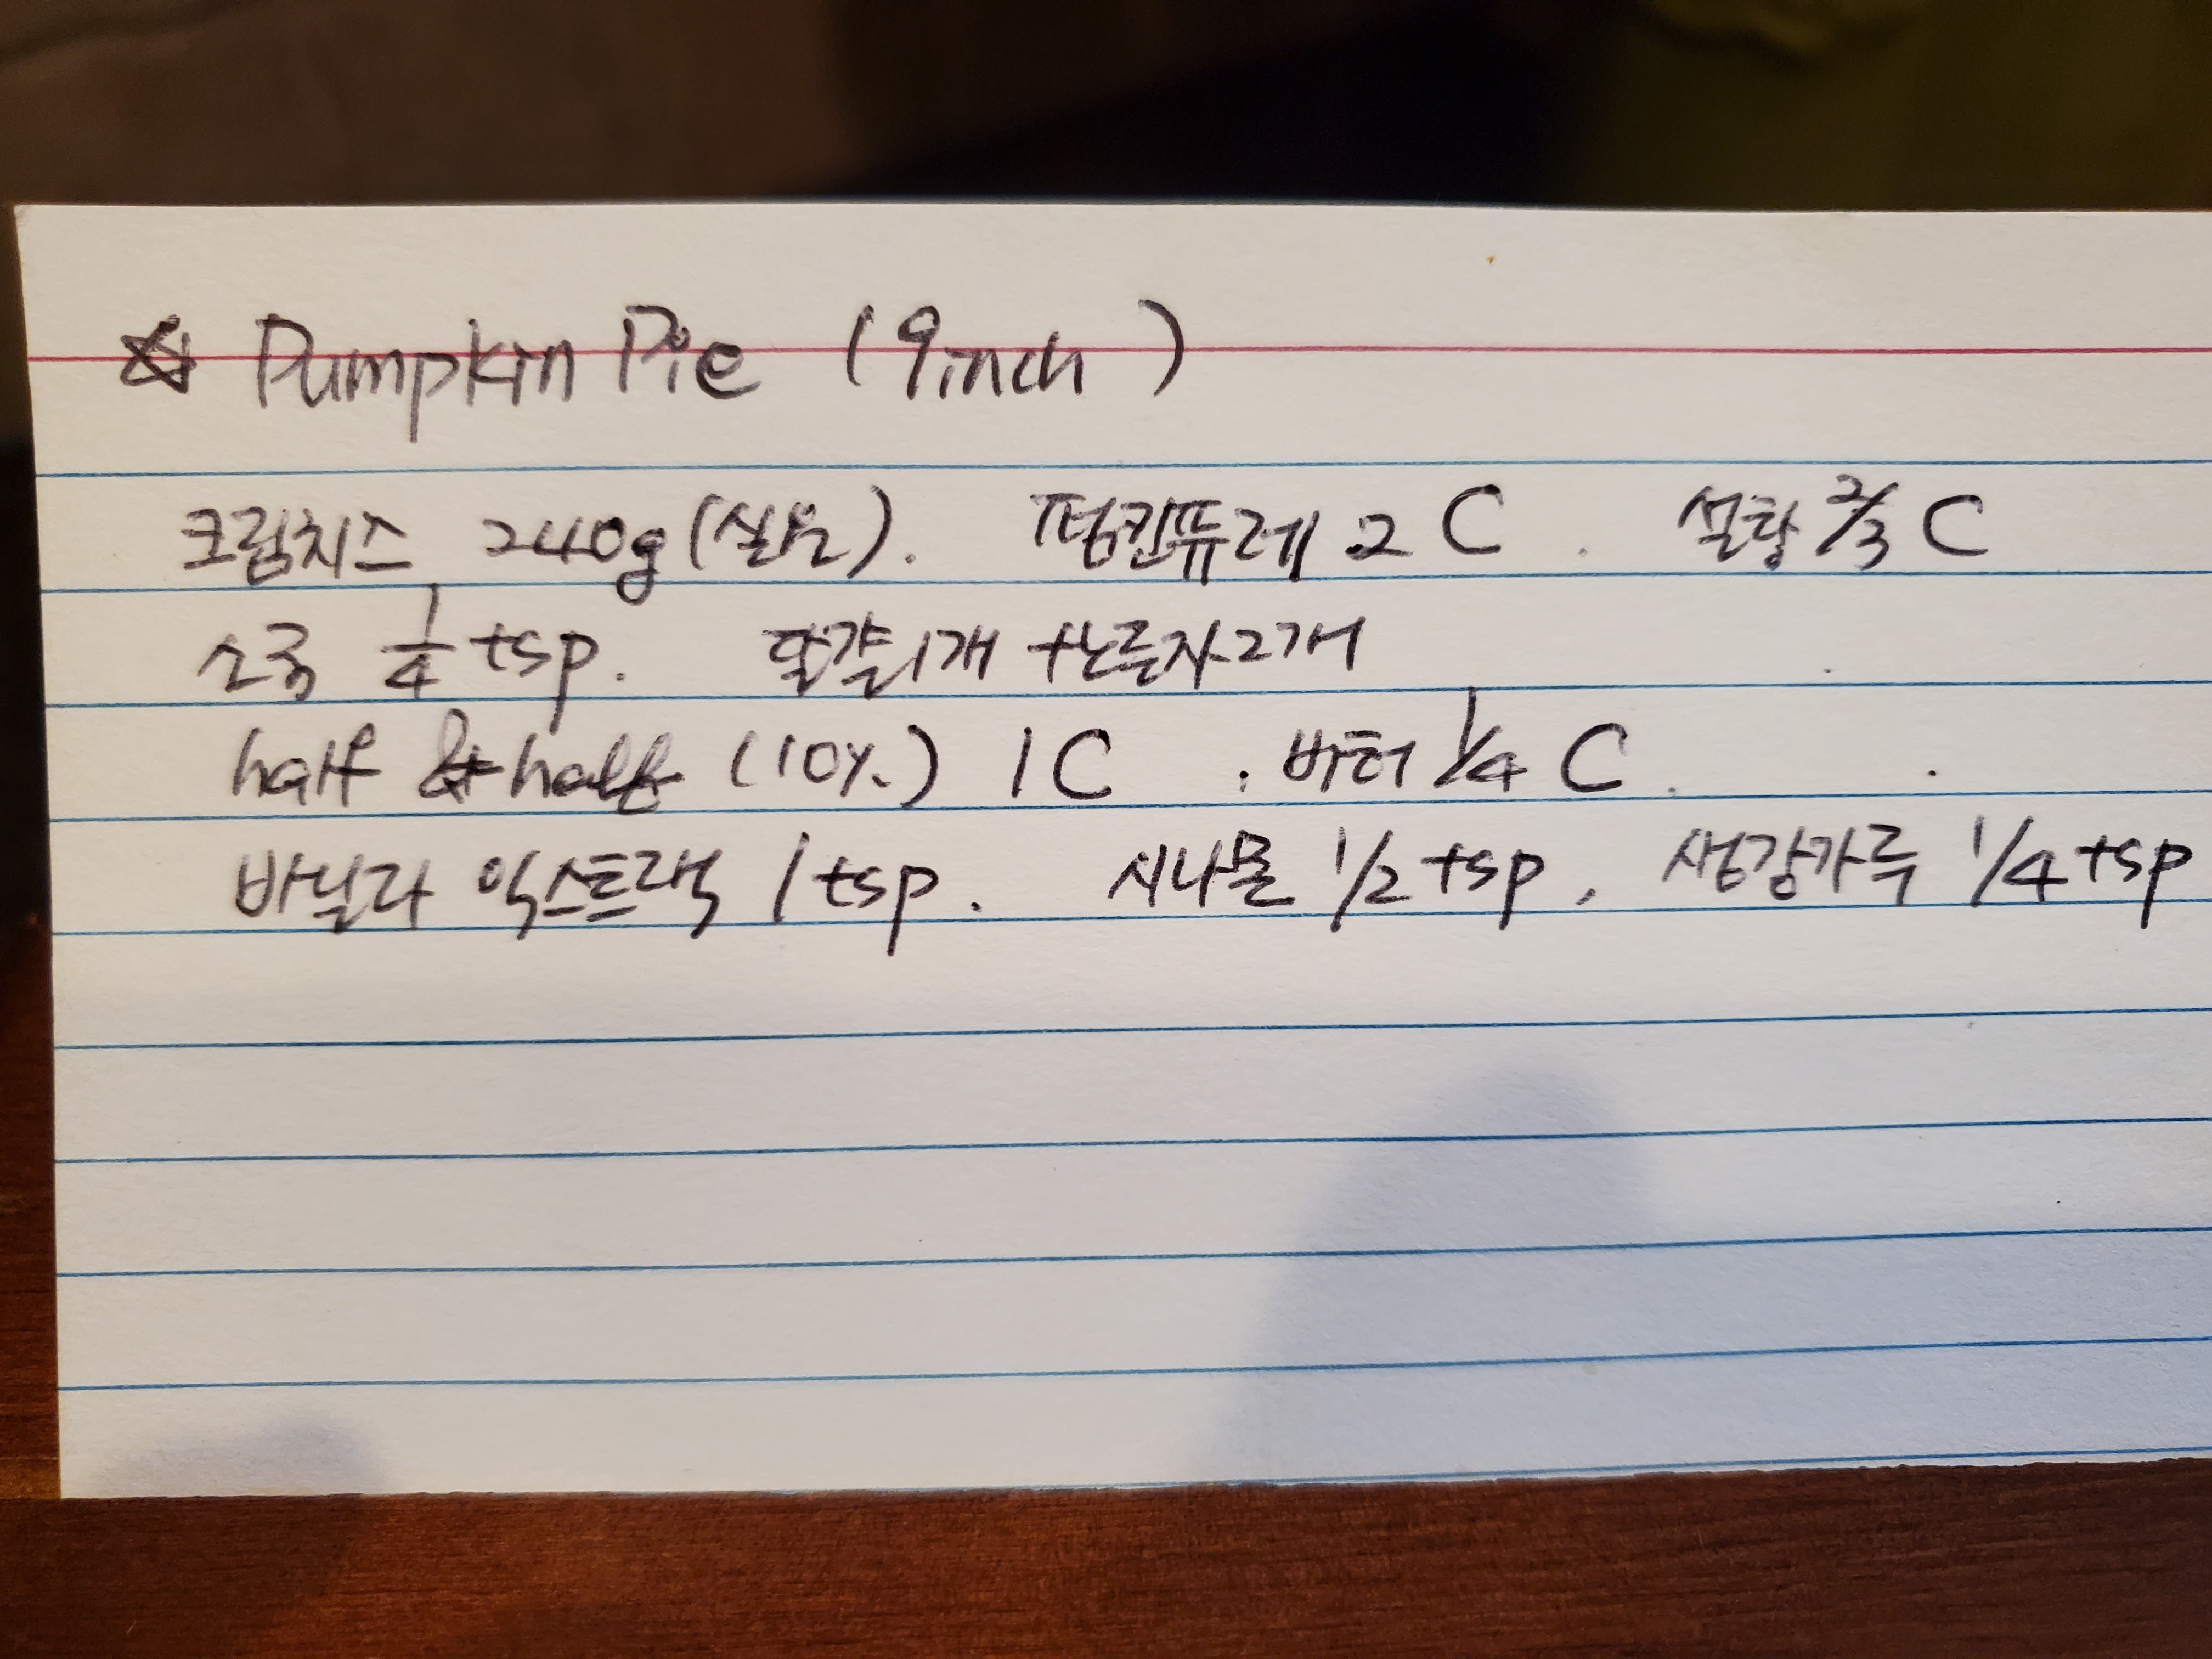 ☆ Pumpkin Pie (9inch)
크림치스 240g (실온). 펌킨퓨레 2 C. 설탕 2/3 C
소금 1/4 tsp. 달걀1개 +노른자2개
half & half (10%) 1 C . 버터 1/4 C.
바닐라 익스트랙 1 tsp. 시나몬 1/2 tsp, 생강가루 1/4 tsp